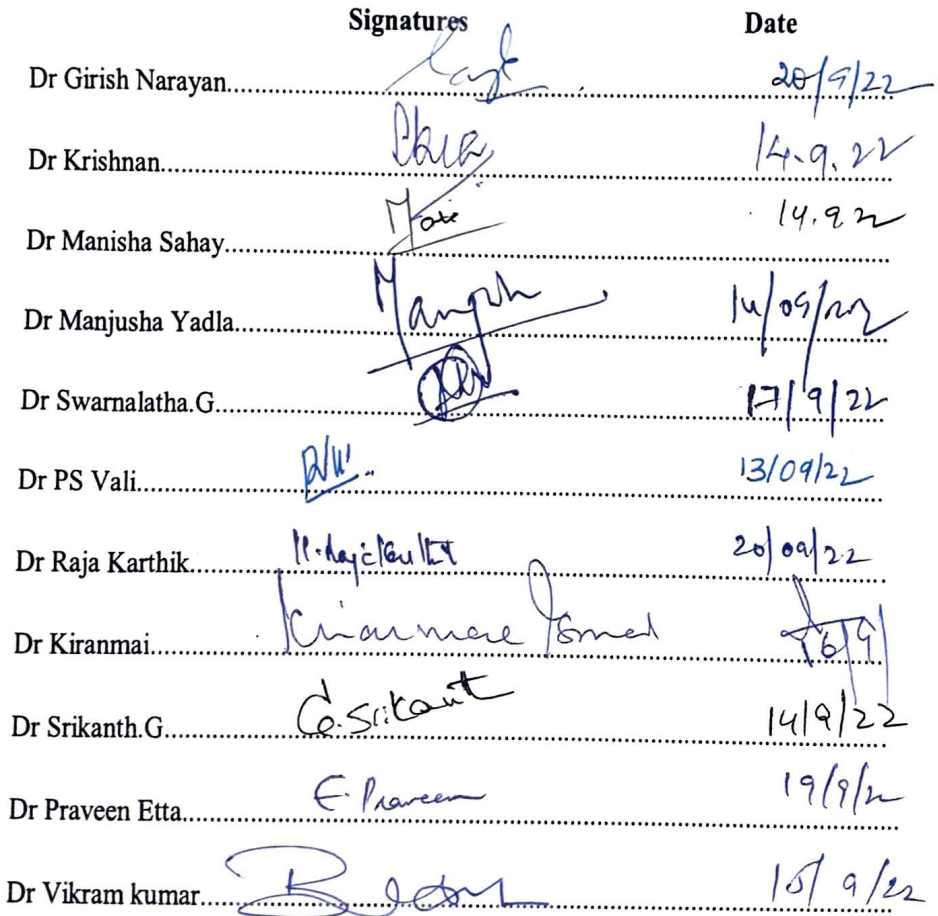 Signatures Date
Dr Girish Narayan.......... 20/9/22
Dr Krishnan.......... 14.9.22
Dr Manisha Sahay.......... 14.9 22
Dr Manjusha Yadla.......... 14/09/2022
Dr Swarnalatha.G.......... 17/9/22
Dr PS Vali.......... 13/09/22
Dr Raja Karthik.......... 20/09/22
Dr Kiranmai.......... 16/9/
Dr Srikanth.G.......... G.Srikant 14/9/22
Dr Praveen Etta.......... E. Praveen 19/9/22
Dr Vikram kumar.......... 15/9/22